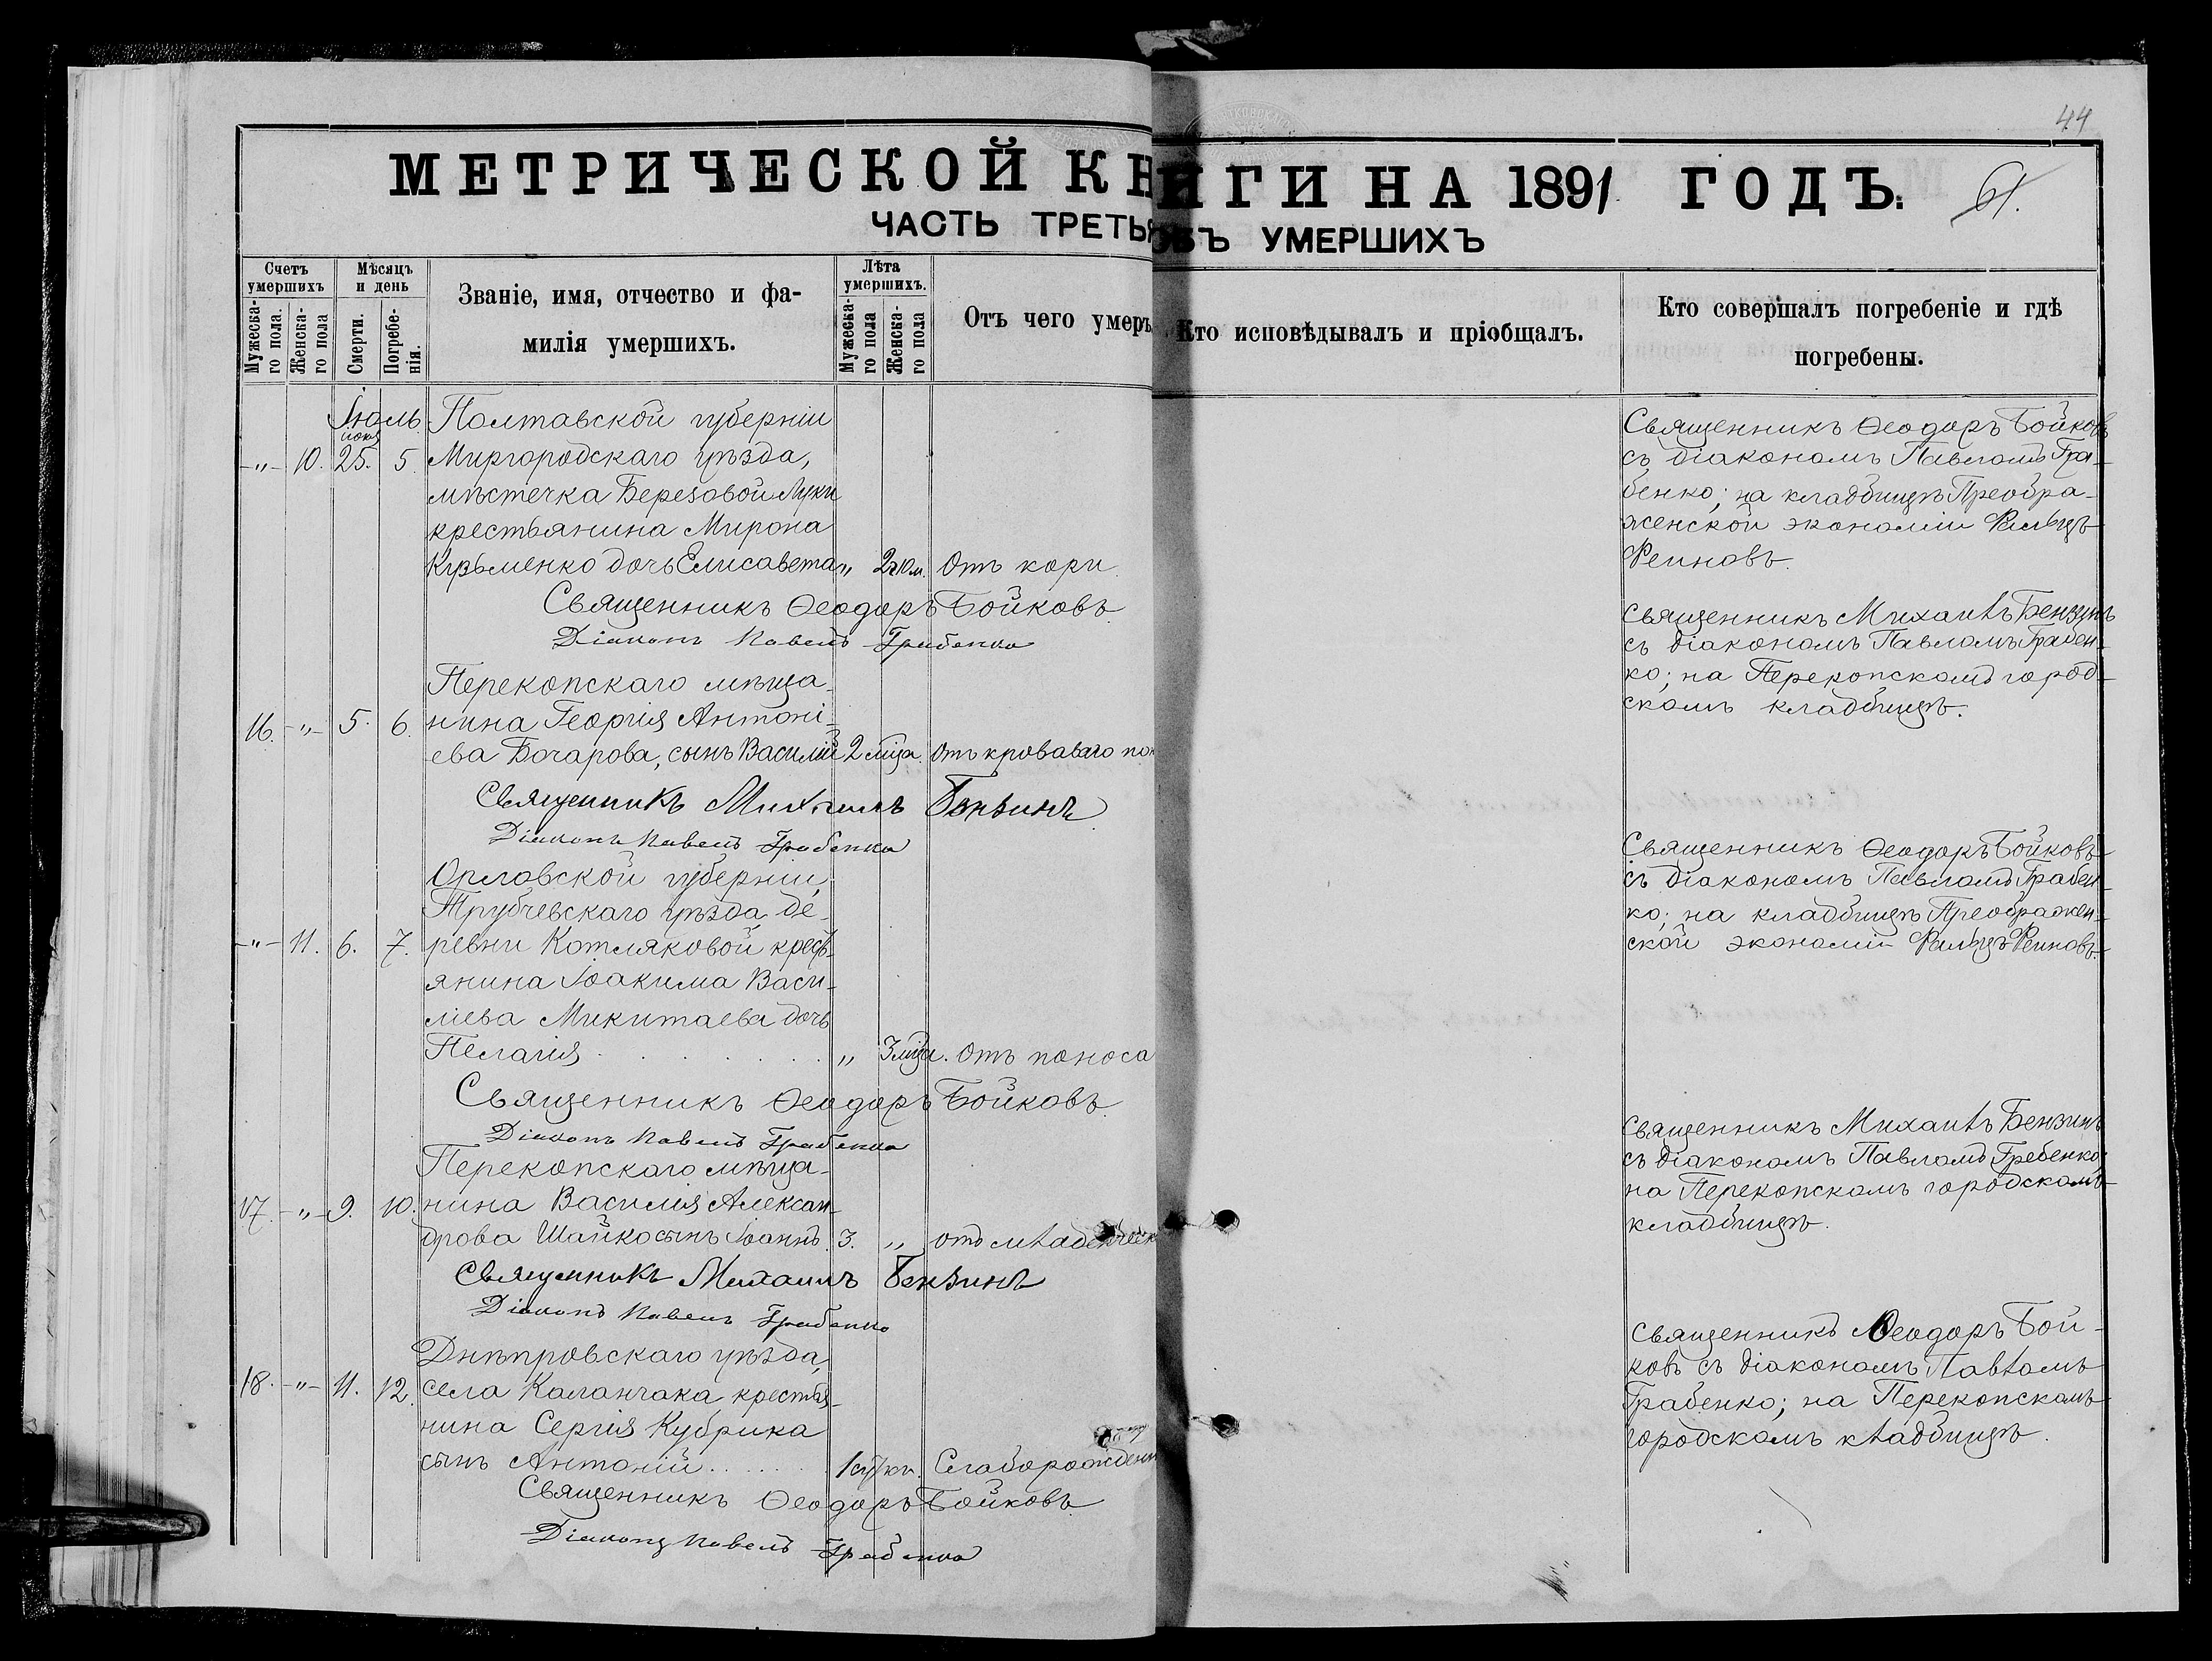 44
МЕТРИЧЕСКОЙ КНИГИ НА 1891 ГОДЪ.
61.
ЧАСТЬ ТРЕТЬЯ ОБЪ УМЕРШИХЪ
Счетъ умершихъ
Мужеска-го пола.
Женска-го пола
Мѣсяцъ и день
Смерти.
Погребе-нія.
Званіе, имя, отчество и фа-
милія умершихъ.
Лѣта умершихъ.
Мужеска-го пола
Женска-го пола
Отъ чего умеръ
Кто исповѣдывалъ и пріобщалъ.
Кто совершалъ погребеніе и гдѣ
погребены.
Іюль
Полтавской губерніи
-„- 10. іюня 25. 5. Миргородскаго уѣзда,
мѣстечка Березовой Луки
крестьянина Мирона
Кузьменко дочь Елисавета „ 2г10м. Отъ кори.
Священникъ Ѳеодоръ Бойковъ
Діаконъ Павелъ Грабенко
Священникъ Ѳеодоръ Бойковъ
съ діакономъ Павломъ Гра-
бенко; на кладбищѣ Преобра-
женской экономіи Фальцъ-
Феиновъ.
Перекопскаго мѣща-
16. -„- 5. 6. нина Георгія Антоні-
ева Бочарова, сынъ Василій 2 мѣся. Отъ кроваваго по
Священникъ Михаилъ Бензинъ
Діаконъ Павелъ Грабенко
Священникъ Михаилъ Бензинъ
съ діакономъ Павломъ Грабен-
ко; на Перекопскомъ город-
скомъ кладбищѣ.
Орловской губерніи,
Трубчевскаго уѣзда, де-
-„- 11. 6. 7. ревни Котляковой крест-
янина Іоакима Васи-
ліева Микитаева дочь
Пелагія . . . . . . . „ 3 мѣся. Отъ поноса
Священникъ Ѳеодоръ Бойковъ
Діаконъ Павелъ Грабенко
Священникъ Ѳеодоръ Бойковъ
съ діакономъ Павломъ Грабен-
ко; на кладбищѣ Преображен-
ской экономіи Фальцъ-Феиновъ.
Перекопскаго мѣща-
17. -„- 9. 10. нина Василія Алексан-
дрова Шайко сынъ Іоаннъ. 3. „ отъ младенческ
Священникъ Михаилъ Бензинъ
Діаконъ Павелъ Грабенко
Священникъ Михаилъ Бензинъ
съ діакономъ Павломъ Гребенко;
на Перекопскомъ городскомъ
кладбищѣ.
Днѣпровскаго уѣзда,
18. -„- 11. 12. села Каланчака крестья-
нина Сергія Кубрика
сынъ Антоній . . . . . . 1 сутки. Слаборожден
Священникъ Ѳеодоръ Бойковъ
Діаконъ Павелъ Грабенко
Священникъ Ѳеодоръ Бой-
ковъ съ діакономъ Павломъ
Грабенко; на Перекопскомъ
городскомъ кладбищѣ.